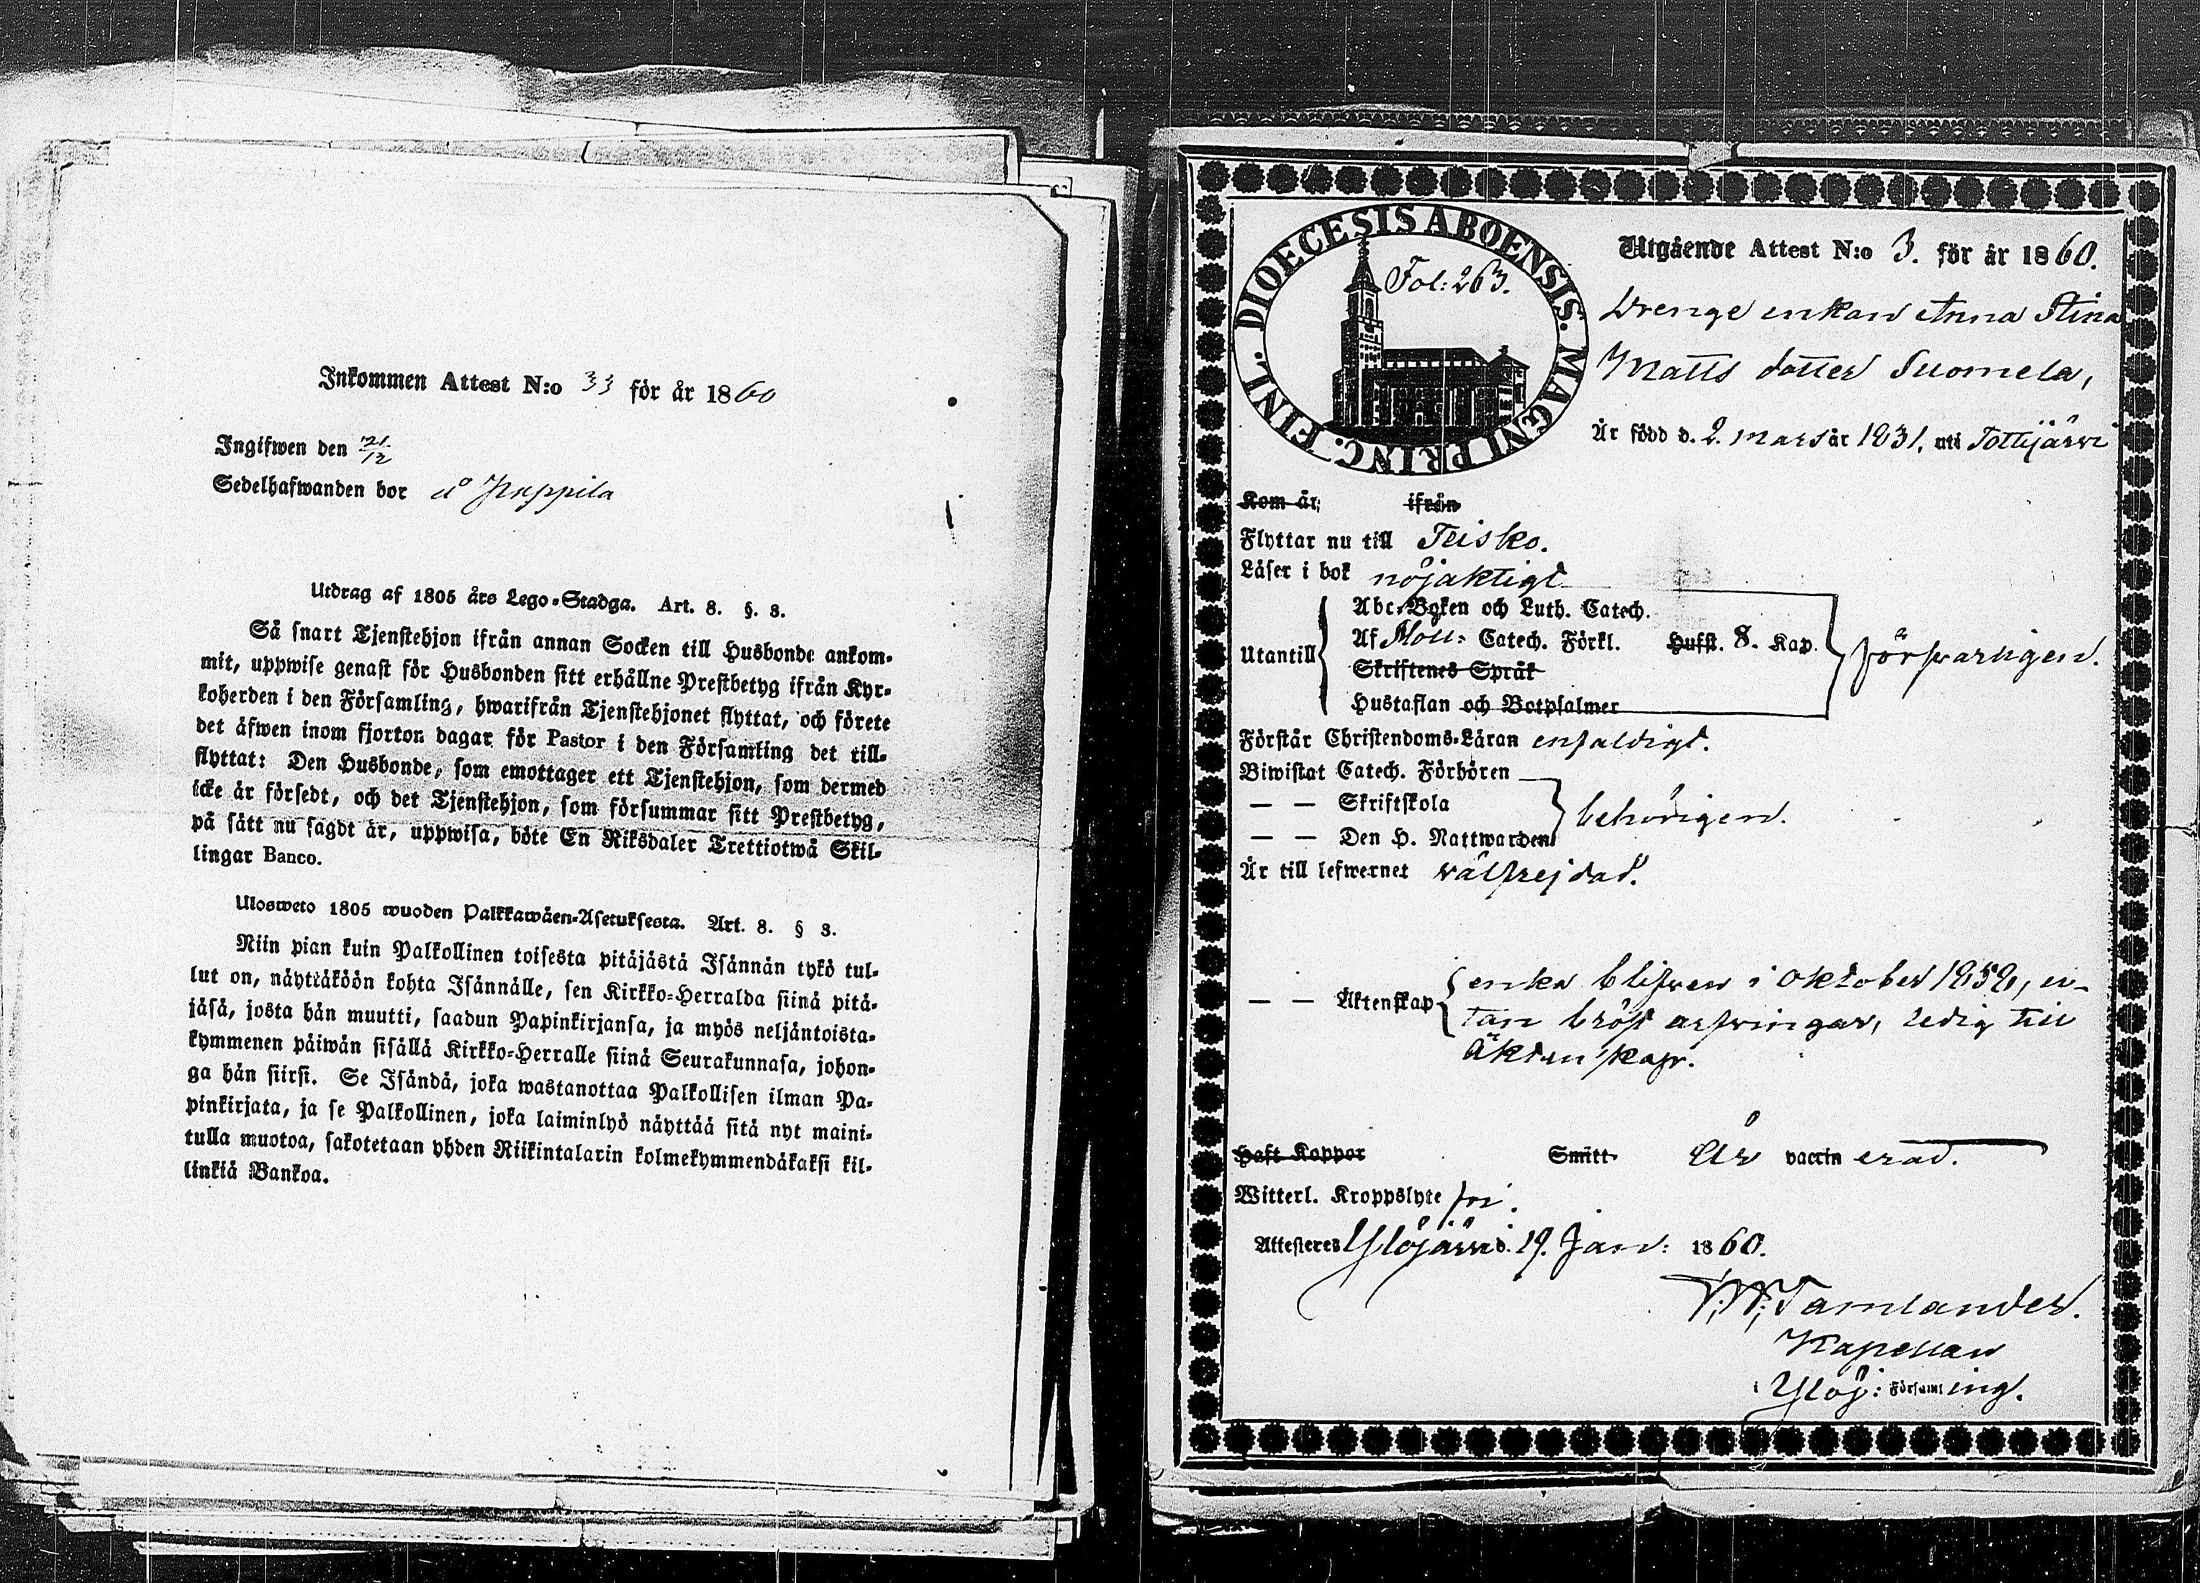 Inkommen Attest N:o 33 för år 1860
Ingifwen den 21/12
Sedelhafwanden bor å
Utdrag af 1805 års Lego-Stadga. Art. 8. §. 8.
Så snart Tjenstehjon ifrån annan Socken till Husbonde ankom-
mit, uppwise genast för Husbonden sitt erhållne Prestbetyg ifrån Kyr-
koherden i den Församling, hwarifrån Tjenstehjonet flyttat, och förete
det äfwen inom fjorton dagar för Pastor i den Församling det till-
flyttat: Den Husbonde, som emottager ett Tjenstehjon, som dermed
icke är försedt, och det Tjenstehjon, som försummar sitt Prestbetyg,
på sätt nu sagdt är, uppwisa, böte En Riksdaler Trettiotwå Skil-
lingar Banco.
Ulosweto 1805 wuoden Palkkawäen-Asetuksesta. Art. 8. § 8.
Niin pian kuin Palkollinen toisesta pitäjästä Isännän tykö tul-
lut on, näyttäköön kohta Isännälle, sen Kirkko-Herralda siinä pitä-
jäsä, josta hän muutti, saadun Papinkirjansa, ja myös neljäntoista-
kymmenen päiwän sisällä Kirkko-Herralle siinä Seurakunnasa, johon-
ga hän siirsi. Se Isändä, joka wastanottaa Palkollisen ilman Pa-
pinkirjata, ja se Palkollinen, joka laiminlyö näyttää sitä nyt maini-
tulla muotoa, sakotetaan yhden Riikintalarin kolmekymmendäkaksi kil-
linkiä Bankoa.
DIOECESIS ABOENSIS. MAGNI PRINC. FINL.
Fol: 263.
Utgående Attest N:o 3. för år 1860.
Drenge enkan Anna Stina
Matts dotter Suomela,
Är född d. 2. mars år 1831. uti Tottijärvi
Kom år ifrån
Flyttar nu till Teisko.
Läser i bok nöjaktigt
Utantill
Abc-Boken och Luth. Catech.
Af Möll: Catech. Förkl. Husst. 8. Kap.
Skriftenes Språk
Hustaflan och Botpsalmer
försvarligen.
Förstår Christendoms-Läran enfaldigt.
Biwistat Catech. Förhören
— — Skriftskola
— — Den H. Nattwarden
behörigen.
Är till lefwernet välfrejdad.
— — Äktenskap
enka blifven i oktober 1858, u-
tan bröst arfvingar, ledig till
Äktenskap.
Haft Koppor Smitt Är vaccinerad.
Witterl. Kroppslyte fri.
Attesteres Ylöjärvi d. 19. Jan: 1860.
Tamlander.
Kapellan
i Ylöj: Församling.